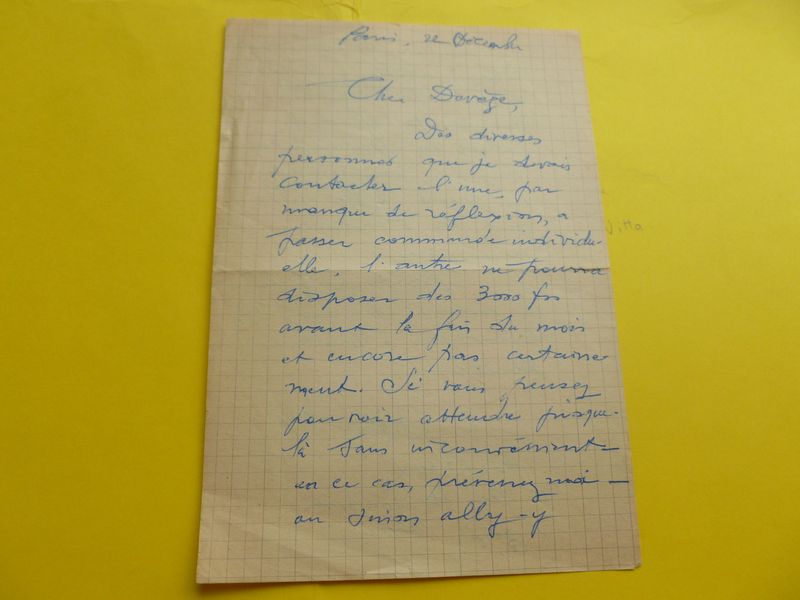 Paris, 22 Décembre
Cher Davèze,
Des diverses
personnes que je devais
contacter l'une, par
manque de réflexion, a
passer commande individu-
elle, l'autre ne pourra
disposer des 3000 frs
avant la fin du mois
et encore pas certaine-
ment. Si vous pensez
pouvoir attendre jusque-
là sans inconvénient -
en ce cas, prévenez moi -
ou sinon allez-y